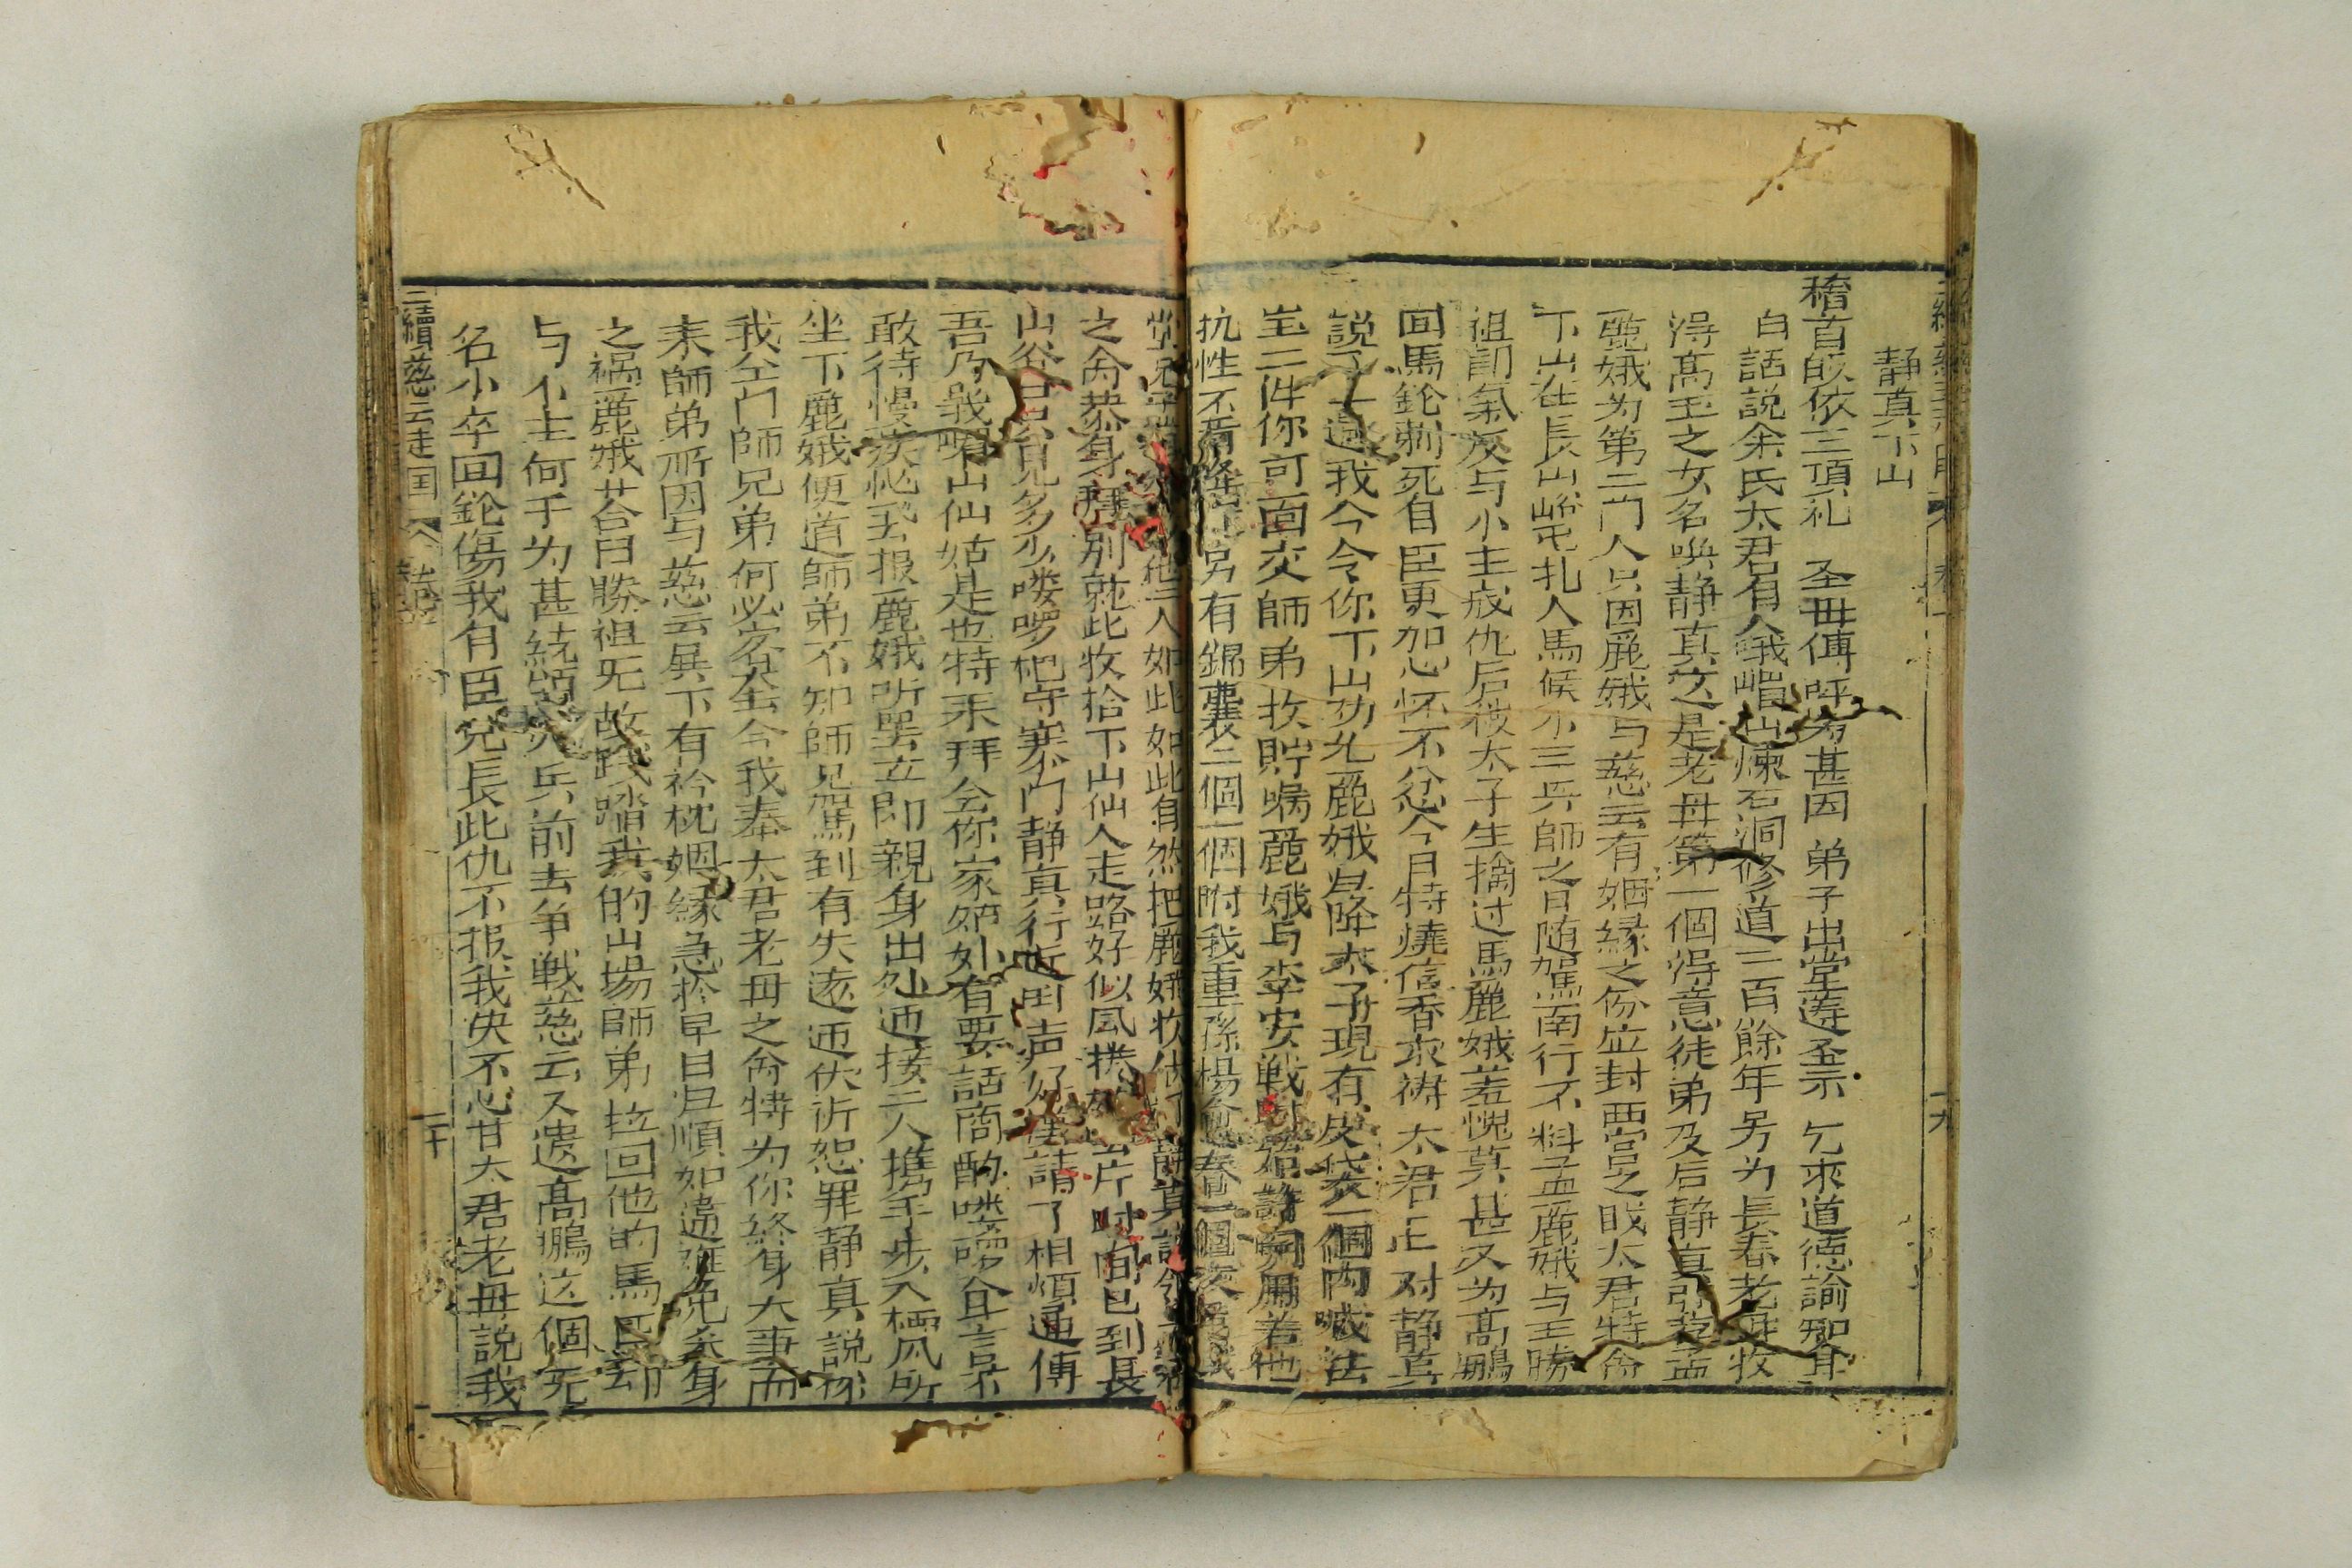 静真下山
稽首皈依三頂礼 圣毋傳呼为甚因 弟子出堂遵圣示 乞求道德諭知耳
白話説余氏太君有人峨嵋山煉石洞修道二百餘年另为長春老毋收
淂髙王之女名唤静真文是老毋第一個淂意徒弟及后静真引荐孟
麗娥为第二门人只因麗娥与慈云有姻緣之份应封西宫之戝太君特命
下山在長山峪屯扎人馬候小主兵師之日随駕南行不料孟麗娥与王勝
祖訚氣反与小主成仇后被太子生擒过馬麗娥羞愧莫甚又为髙鵬
囬馬鎗刺死自臣更加心怀不忿今日特燒信香哀祷太君正对静真
説了一遍我今令你下山劝化麗娥归降太子現有皮袋一個内藏法
宝二件你可面交師弟收貯嘱麗娥与李安戦时用着他
抗性不肯降 另有錦囊二個一個附我重孫楊 春一個
人如此如此自然把麗娥收伏了静真
之命恭身拜别就此收拾下山仙人走路好似風捲 片时间已到長
山谷口只見多少喽啰把守寨门静真行近 声 請了相煩通傳
吾乃峨嵋山仙姑是也特来拜会你家 外有要話商酌喽啰 言不
敢待慢 报麗娥听罢立即親身出外迊接二人携手步入 所
坐下麗娥便道師弟不知師兄駕到有失遠迊伏祈恕罪静真説你
我仝门師兄弟何必客套今我奉太君老毋之命特为你終身大事而
来師弟所因与慈云異下有衿枕姻緣急於早日归順如違难免杀身
之禍麗娥荅曰勝祖旡故践踏我的山場師弟拉回他的馬匹却
与小主何手为甚統領 兵前去争戦慈云又遗髙鵬这個死
名小卒回鎗傷我有臣兄長此仇不报我决不心甘太君老毋説我
三續慈云走国 卷
二十
十九